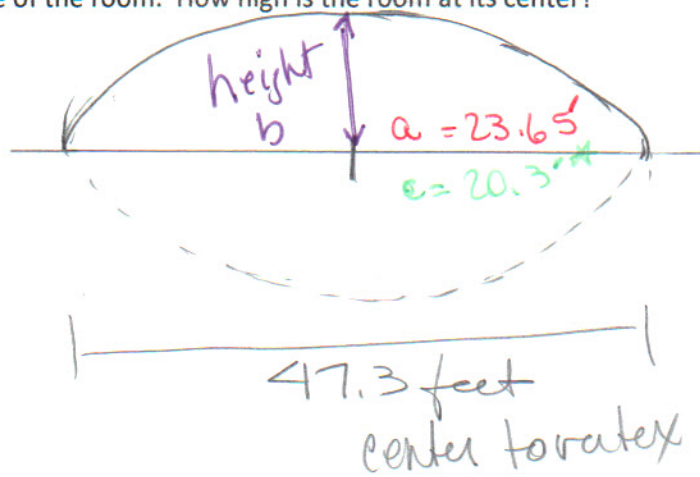 e of the room. How high is the room at its center?
height
b
a = 23.65'
c = 20.3'
47.3 feet
center to vertex